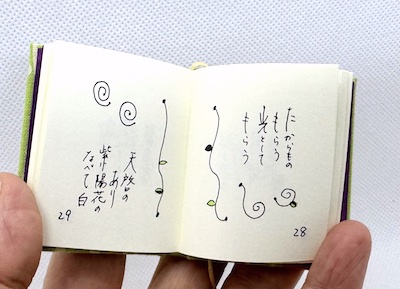 たからもの
もらう
光として
もらう
28
天啓の
あり
紫陽花の
なべて白
29